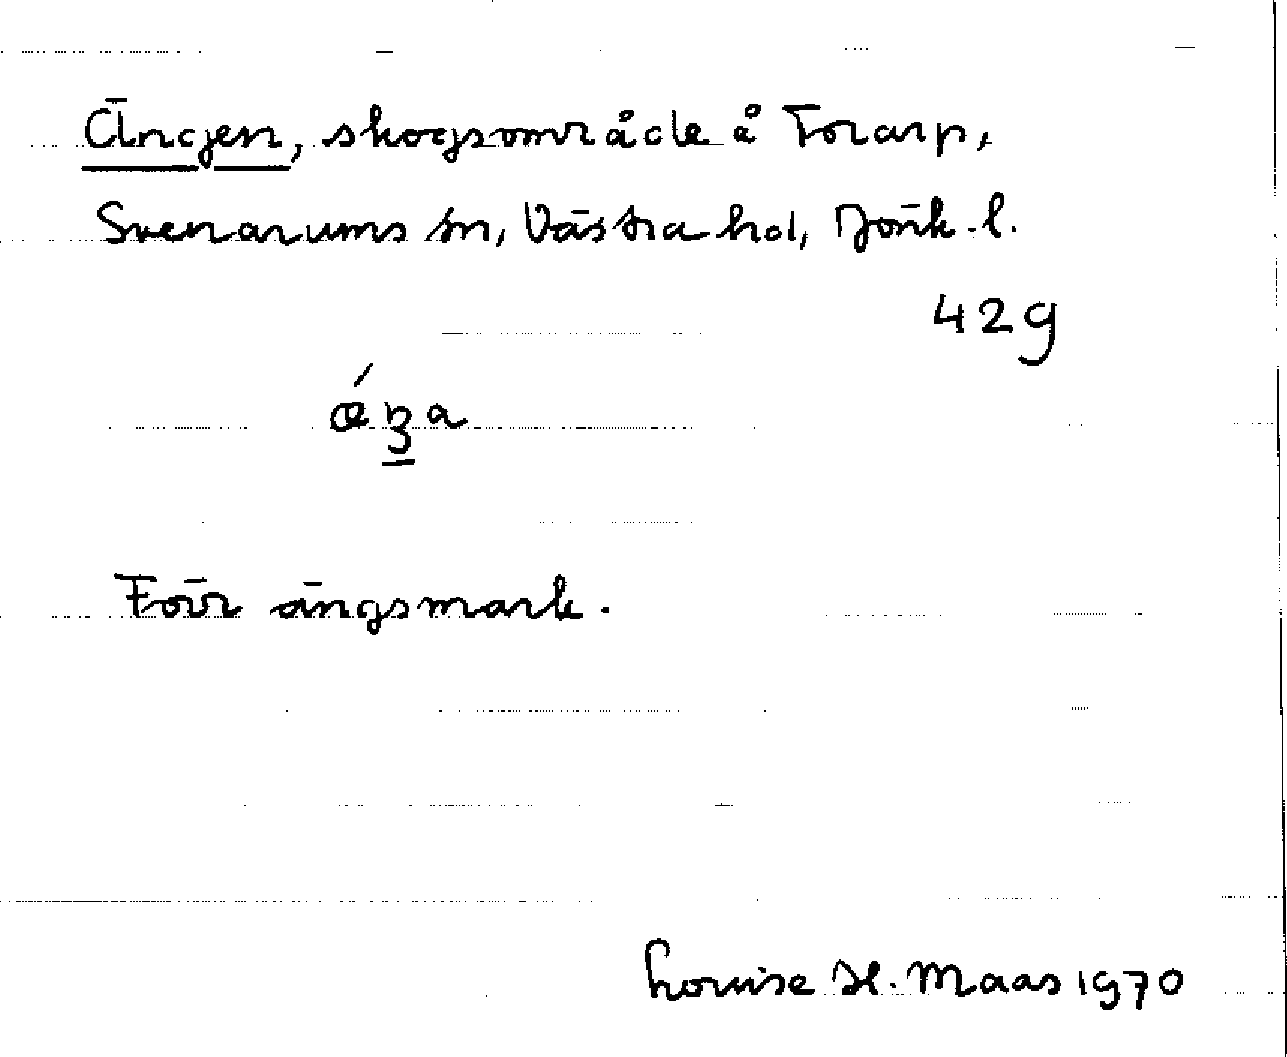 Ängen, skogsområde å Torarp,
Svenarums sn, Västra hd, Jönk. l.
42g
Förr ängsmark.
Louise H. Maas 1970